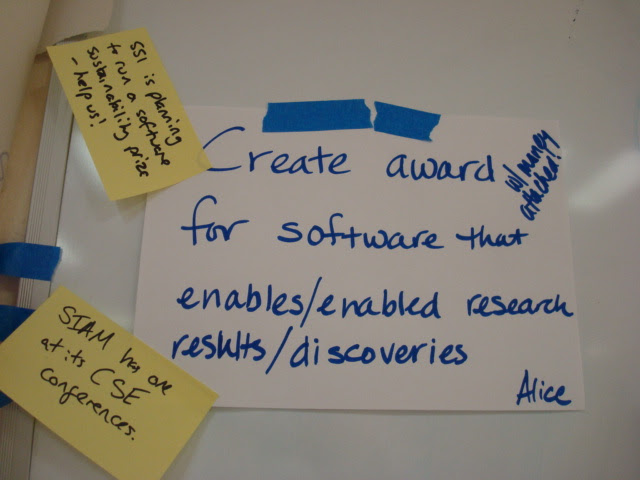 SSI is planning
to run a software
sustainability prize
- help us!
Create award
w/ money
attached!?
for software that
enables/enabled research
results/discoveries
Alice
SIAM has one
at its CSE
conferences.